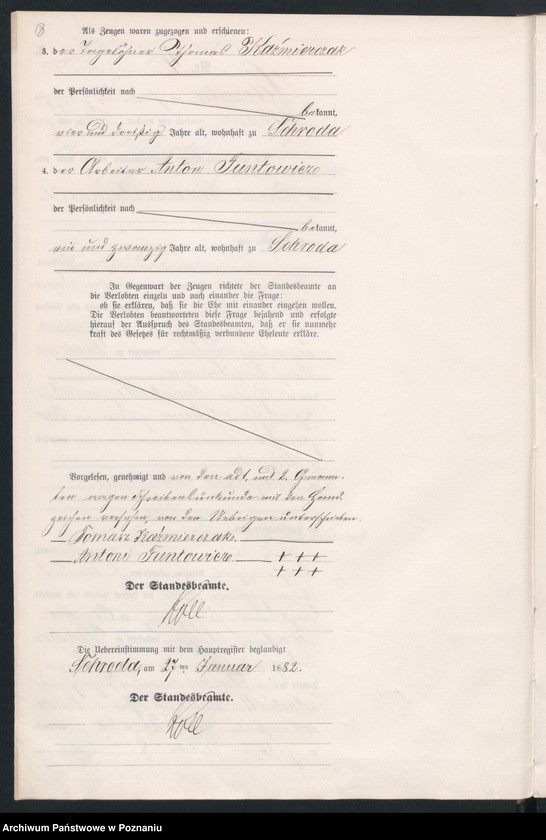 8
Als Zeugen waren zugezogen und erschienen:
3. der Tagelöhner Thomas Kaźmierczak
der Persönlichkeit nach
bekannt,
vier und dreißig Jahre alt, wohnhaft zu Schroda
4. der Arbeiter Anton Funtowicz
der Persönlichkeit nach
bekannt,
ein und zwanzig Jahre alt, wohnhaft zu Schroda
In Gegenwart der Zeugen richtete der Standesbeamte an
die Verlobten einzeln und nach einander die Frage:
ob sie erklären, daß sie die Ehe mit einander eingehen wollen.
Die Verlobten beantworteten diese Frage bejahend und erfolgte
hierauf der Ausspruch des Standesbeamten, daß er sie nunmehr
kraft des Gesetzes für rechtmäßig verbundene Eheleute erkläre.
Vorgelesen, genehmigt und von den ad 1. und 2. Genann-
ten wegen Schreibensunkunde mit den Hand-
zeichen versehen, von den Uebrigen unterschrieben.
Tomasz Kaźmierczak.
Antoni Funtowicz. +++
+++
Der Standesbeamte.
Die Uebereinstimmung mit dem Hauptregister beglaubigt
Schroda, am 27 ten Januar 1882.
Der Standesbeamte.
Archiwum Państwowe w Poznaniu